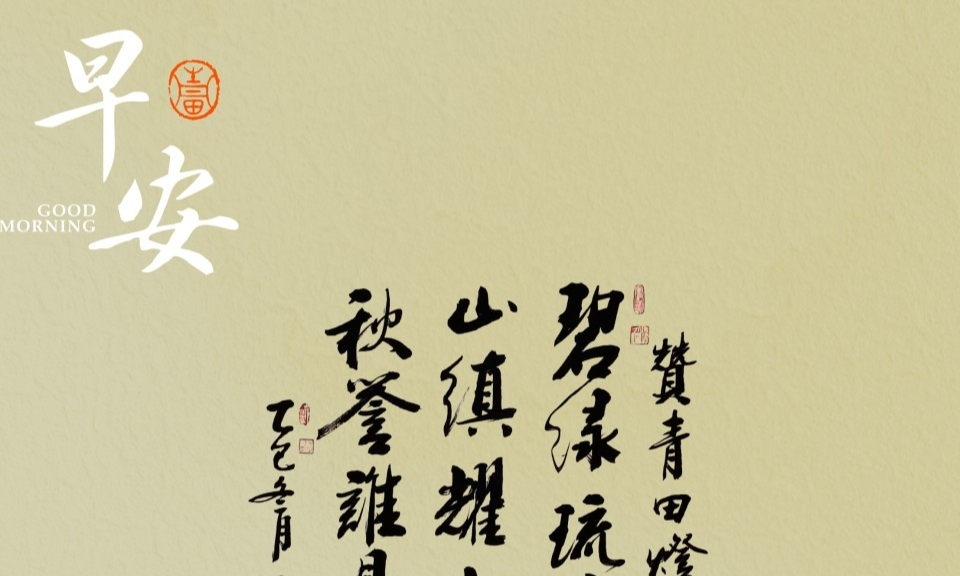 早安
GOOD
MORNING
贊青田燈
碧綠琉
山縝耀
秋譽誰
乙巳冬月